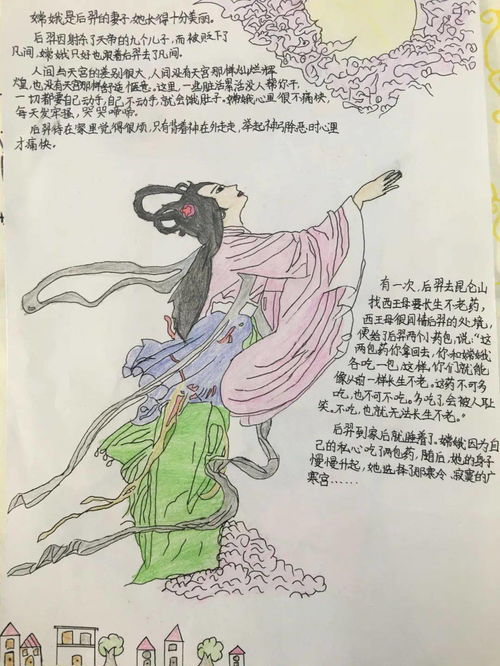 嫦娥是后羿的妻子,她长得十分美丽。
后羿因射杀了天帝的九个儿子,而被贬下了
凡间,嫦娥只好也跟着后羿去了凡间。
人间与天宫的差别很大,人间没有天宫那样灿烂辉
煌,也没有天宫那样舒适惬意。这里,一些脏活累活没人帮你干,
一切都要自己动手,自己不动手,就会饿肚子。嫦娥心里很不痛快,
每天发牢骚,哭哭啼啼。
后羿待在家里觉得很烦,只有背着神在外走走,举起神弓除恶时心里
才痛快。
有一次,后羿去昆仑山
找西王母要长生不老药,
西王母很同情后羿的处境,
便给了后羿两个小药包,说:“这
两包药你拿回去,你和嫦娥
各吃一包,这样,你们就能
像从前一样长生不老。这药不可多
吃,也不可不吃。多吃了会被人耻
笑。不吃,也就无法长生不老。”
后羿到家后就睡着了。嫦娥因为自
己的私心吃了两包药,随后,她的身子
慢慢升起,她选择了那寒冷、寂寞的广
寒宫……